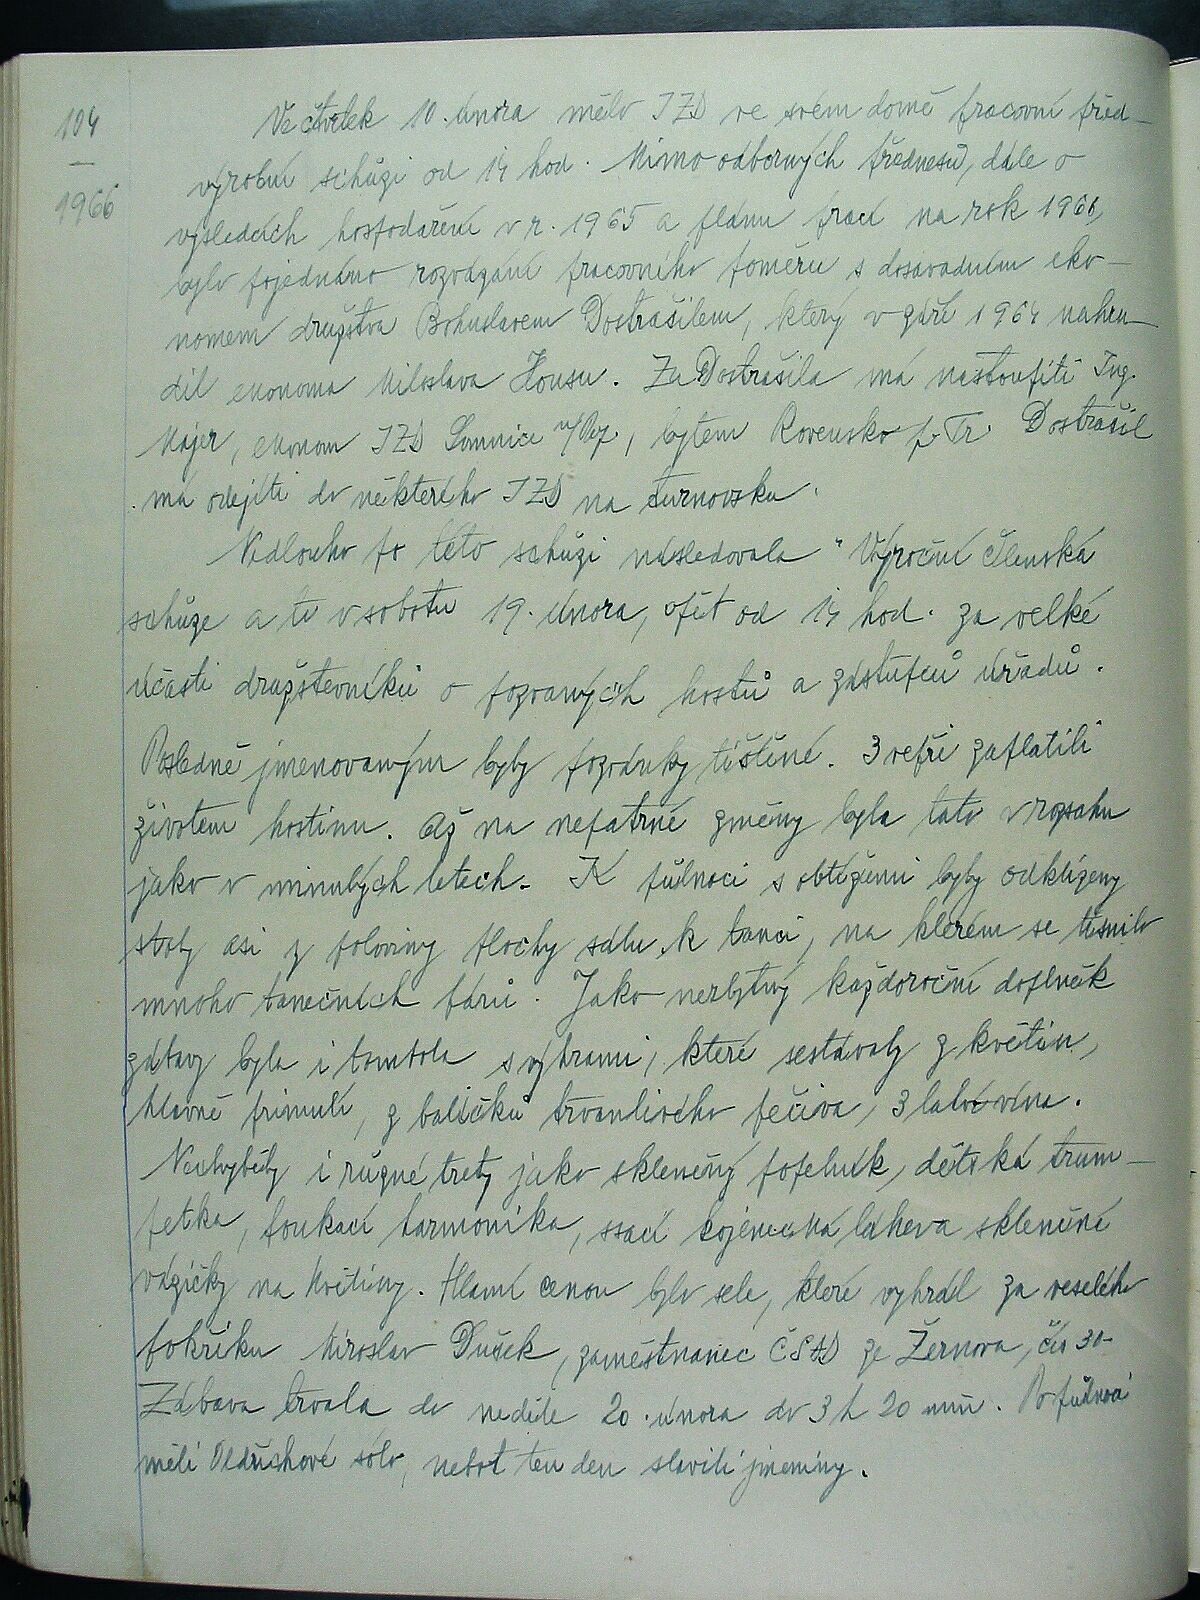 104
1966
Ve čtvrtek 10. února mělo JZD ve svém domě pracovní před-
výrobní schůzi od 14 hod. Mimo odborných přednesů, dále o
výsledcích hospodaření v r. 1965 a plánu prací na rok 1966,
bylo pojednáno rozvázání pracovního poměru s dosavadním eko-
nomem družstva Bohuslavem Dostrašilem, který v září 1964 nahra-
dil ekonoma Miloslava Housu. Za Dostrašila má nastoupiti Ing.
Majer, ekonom JZD Lomnice n/Pop., bytem Rovensko p. Tr. Dostrašil
má odejíti do některého JZD na turnovsku.
Nedlouho po této schůzi následovala "Výroční členská
schůze a to v sobotu 19. února, opět od 14 hod. za velké
účasti družstevníků o pozvaných hostů a zástupců úřadů.
Posledně jmenovaným byly pozvánky tištěné. 3 vepři zaplatili
životem hostinu. Až na nepatrné změny byla tato v rozsahu
jako v minulých letech. K půlnoci s obtížemi byly odklizeny
stoly asi z poloviny plochy sálu k tanci, na kterém se tísnilo
mnoho tanečních párů. Jako nezbytný každoroční doplněk
zábavy byla i tombola s výhrami, které sestávaly z květin,
hlavně primulí, z balíčků trvanlivého pečiva, 3 lahví vína.
Nechyběly i různé trety jako skleněný popelník, dětská trum-
petka, foukací harmonika, ssací kojenecká láhev a skleněné
vázičky na květiny. Hlavní cenou bylo sele, které vyhrál za veselého
pokřiku Miroslav Dušek, zaměstnanec ČSAD ze Žernova, čp. 30-
Zábava trvala do neděle 20. února do 3 h 20 min. Po půlnoci
měli Oldřichové sólo, neboť ten den slavili jmeniny.